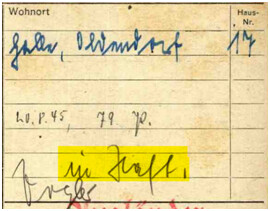 Wohnort Haus-Nr.
Halle, Oldendorf 17
20.8.45, 79 
in Haft.